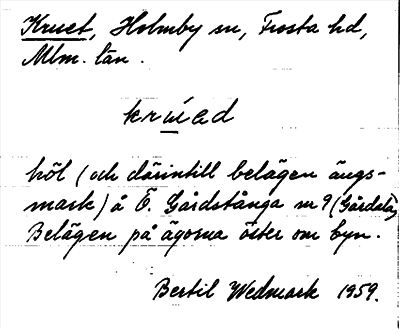 Kruet, Holmby sn, Frosta hd,
Mlm. län.
krúəd
höl (och därintill belägen ängs-
mark) å Ö. Gårdstånga nr 9 (Gårdstå
Belägen på ägorna öster om byn.
Bertil Wedmark 1959.